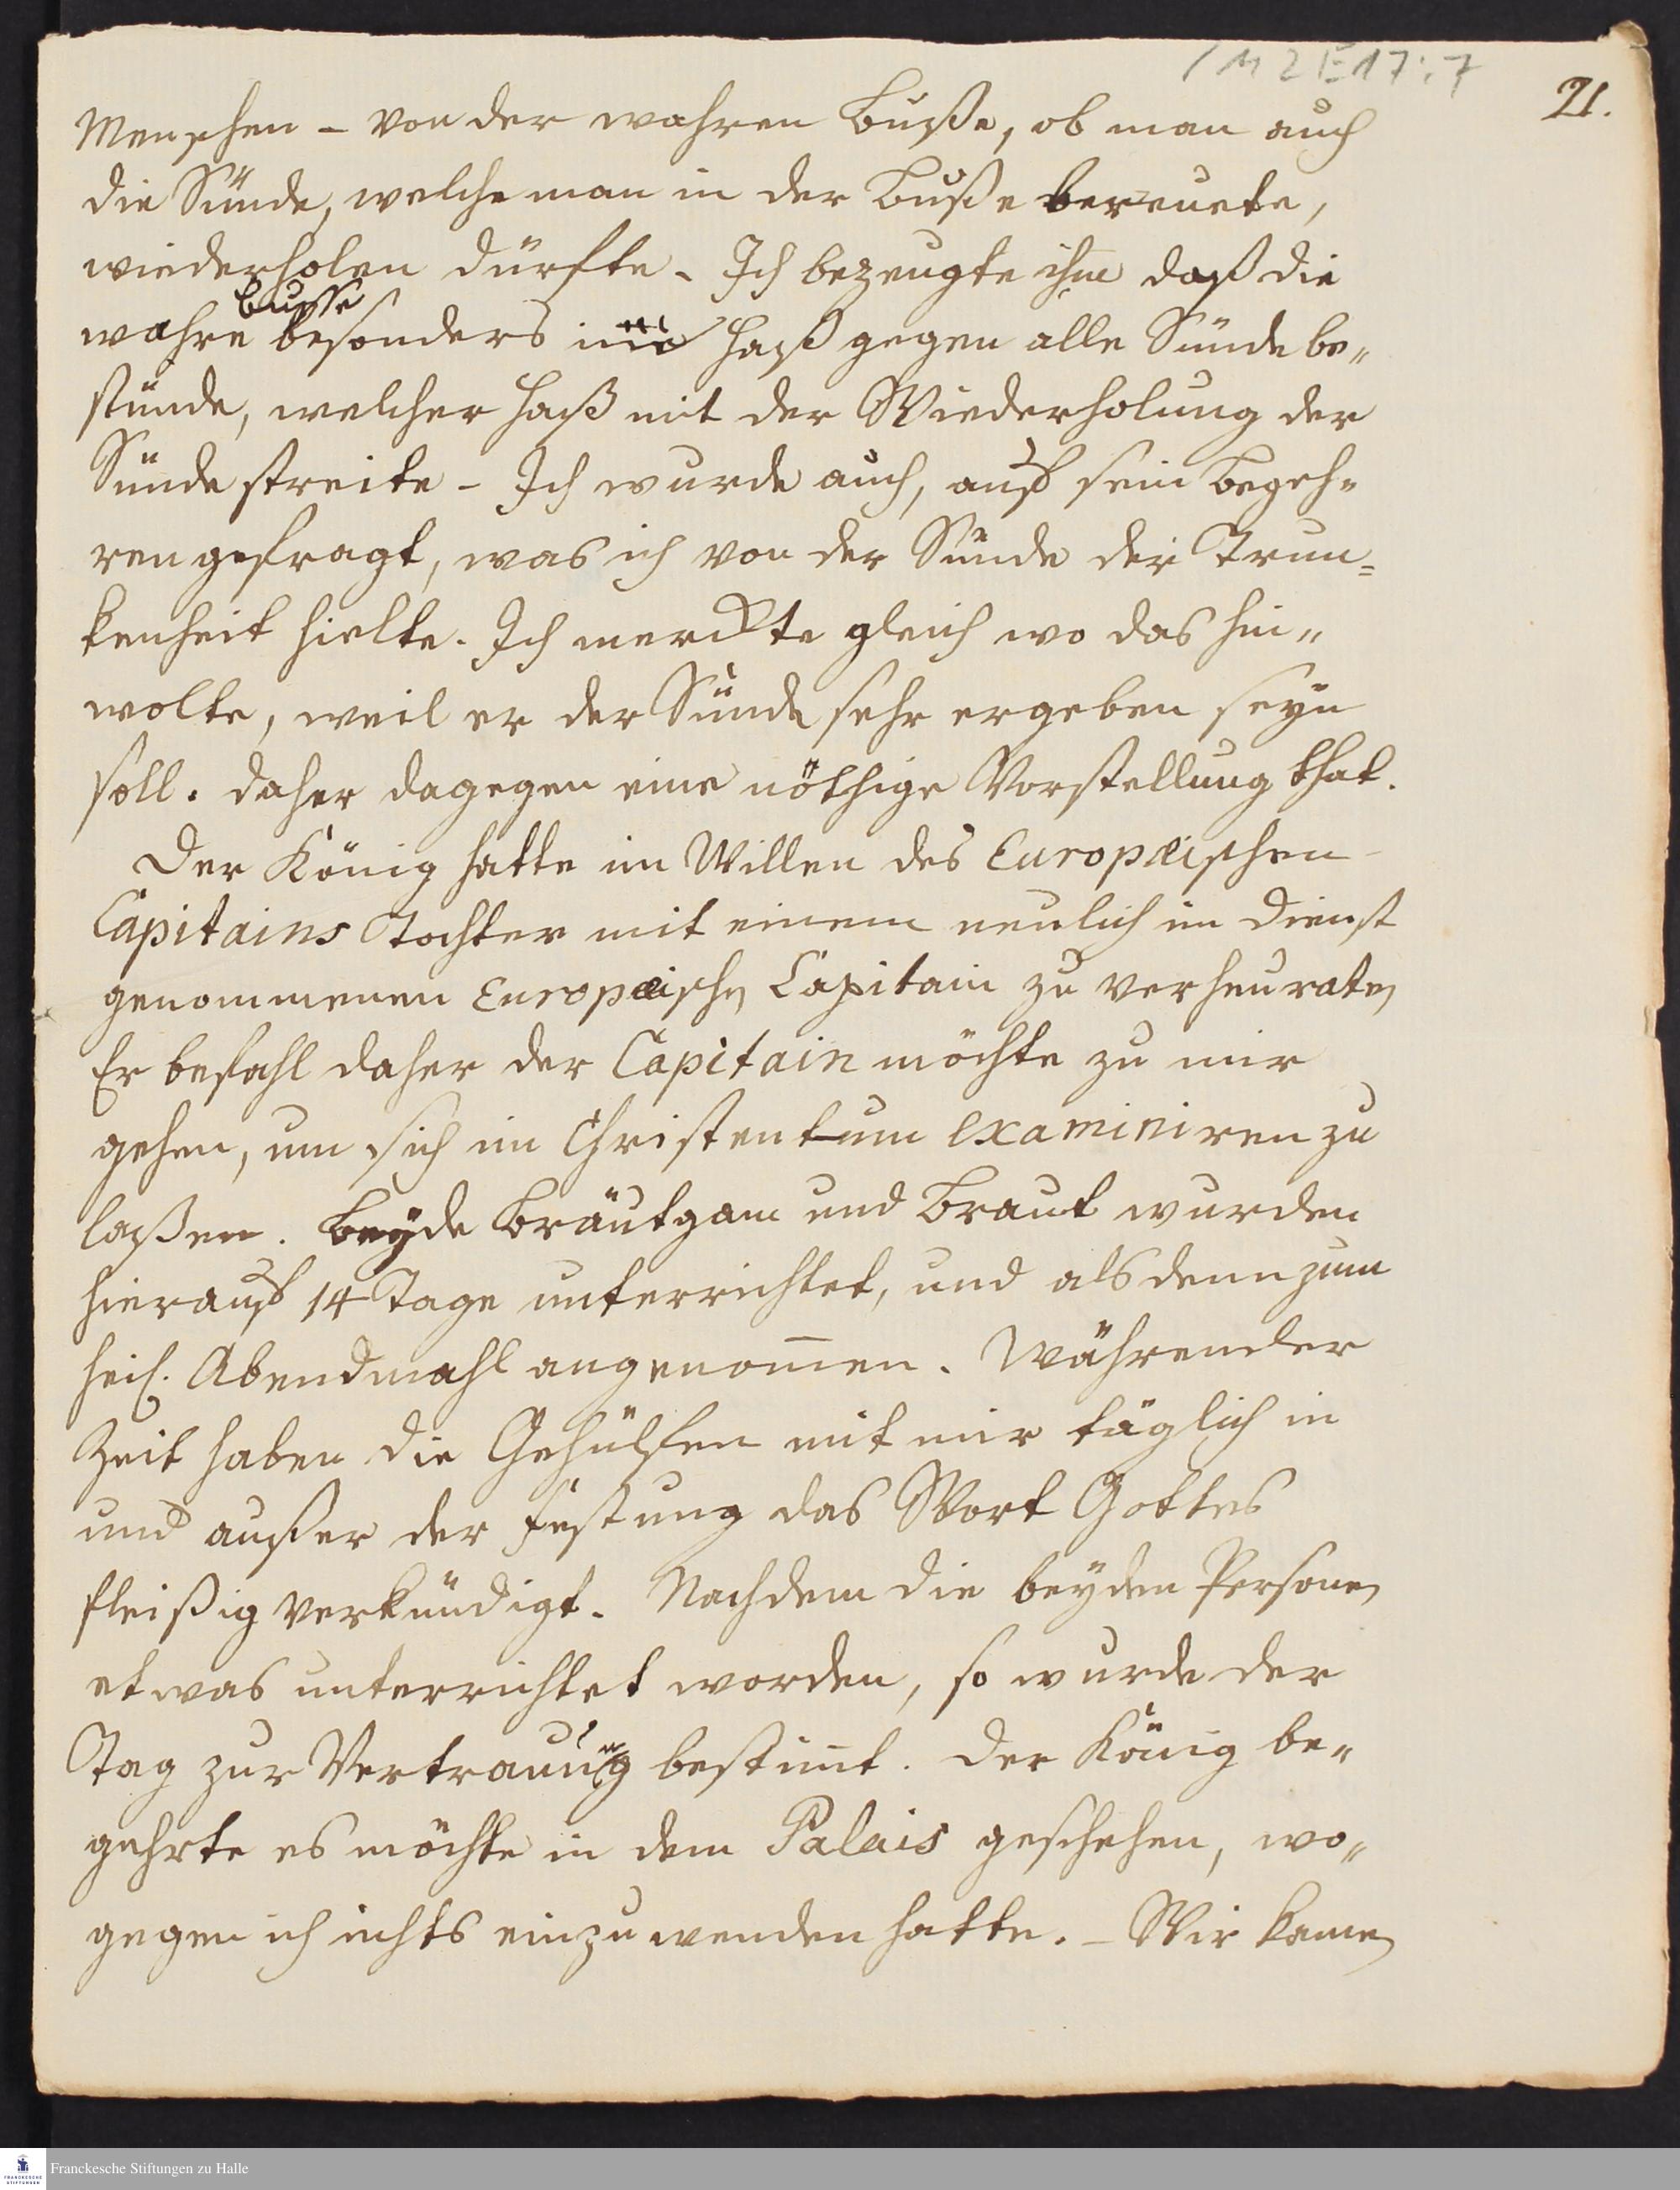 1 M 2 E 17 : 7
21.
Menschen – von der wahren Buße, ob man auch
die Sünde, welche man in der Buße bereuete,
wiederholen dürfte – Ich bezeugte ihm daß die
Busse
wahre besonders im Haß gegen alle Sünde be„
stünde, welcher Haß mit der Wiederholung der
Sünde streite – Ich wurde auch, auf sein Begeh„
ren gefragt, was ich von der Sünde der Trun„
kenheit hielte. Ich merckte gleich wo das hin„
wolte, weil er der Sünde sehr ergeben seyn
soll. daher dagegen eine nöthige Vorstellung that.
Der König hatte im Willen des Europæischen
Capitains Tochter mit einem neulich in Dienst
genommenen Europæischen Capitain zu verheuraten
Er befahl daher der Capitain möchte zu mir
gehen, um sich im Christentum examiniren zu
laßen. Beyde Bräutgam und Braut wurden
hierauf 14 Tage unterrichtet, und alsdenn zum
heil. Abendmahl angenom̄en. Während der
Zeit haben die Gehülfen mit mir täglich in
und außer der Festung das Wort Gottes
fleißig verkündigt. Nachdem die beyden Personen
etwas unterrichtet worden, so wurde der
Tag zur Vertrauung bestim̄t. Der König be„
gehrte es möchte in dem Palais geschehen, wo„
gegen ich nichts einzuwenden hatte. – Wir kamen
FRANCKESCHE STIFTUNGEN
Franckesche Stiftungen zu Halle